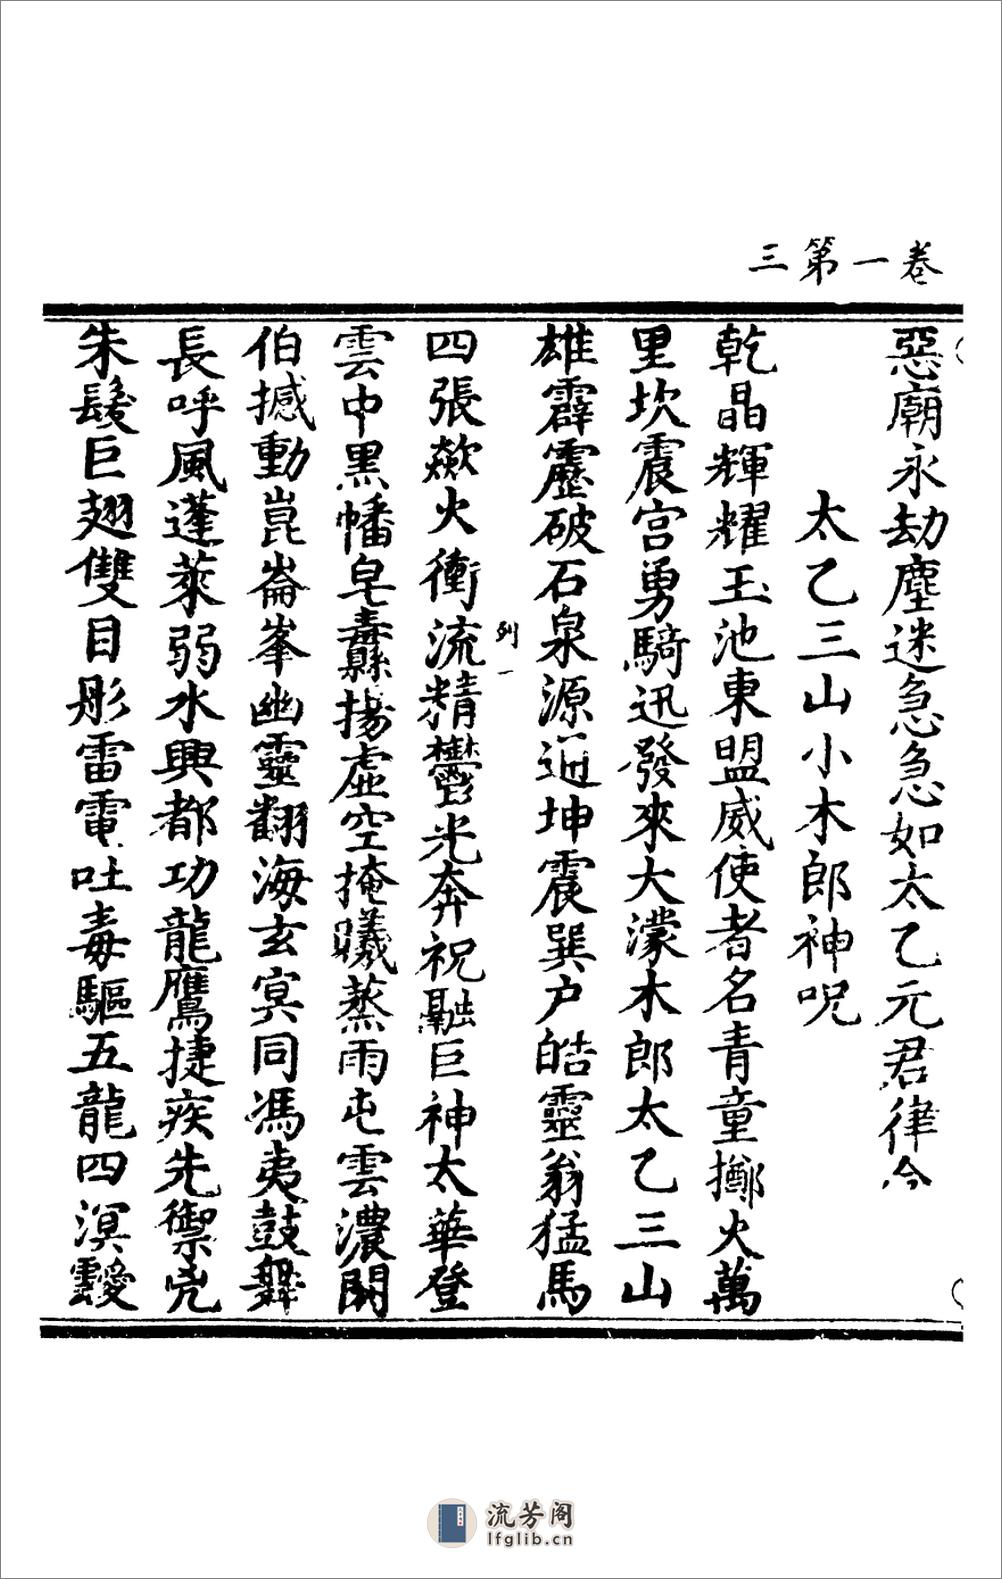 卷一第三
惡廟永劫塵迷急急如太乙元君律令
太乙三山小木郎神呪
乾晶輝耀玉池東盟威使者名青童擲火萬
里坎震宫勇騎迅發來大濛木郎太乙三山
雄霹靂破石泉源通坤震巽户皓靈翁猛馬
列一
四張歘火衝流精鬱光奔祝融巨神太華登
雲中黑幡皂纛揚虚空掩曦蒸雨屯雲濃閼
伯撼動崑崙峯幽靈翻海玄冥同馮夷鼓舞
長呼風蓬萊弱水興都功龍鷹捷疾先禦兇
朱髮巨翅雙目彤雷電吐毒驅五龍四溟靉
流芳阁
lfglib.cn